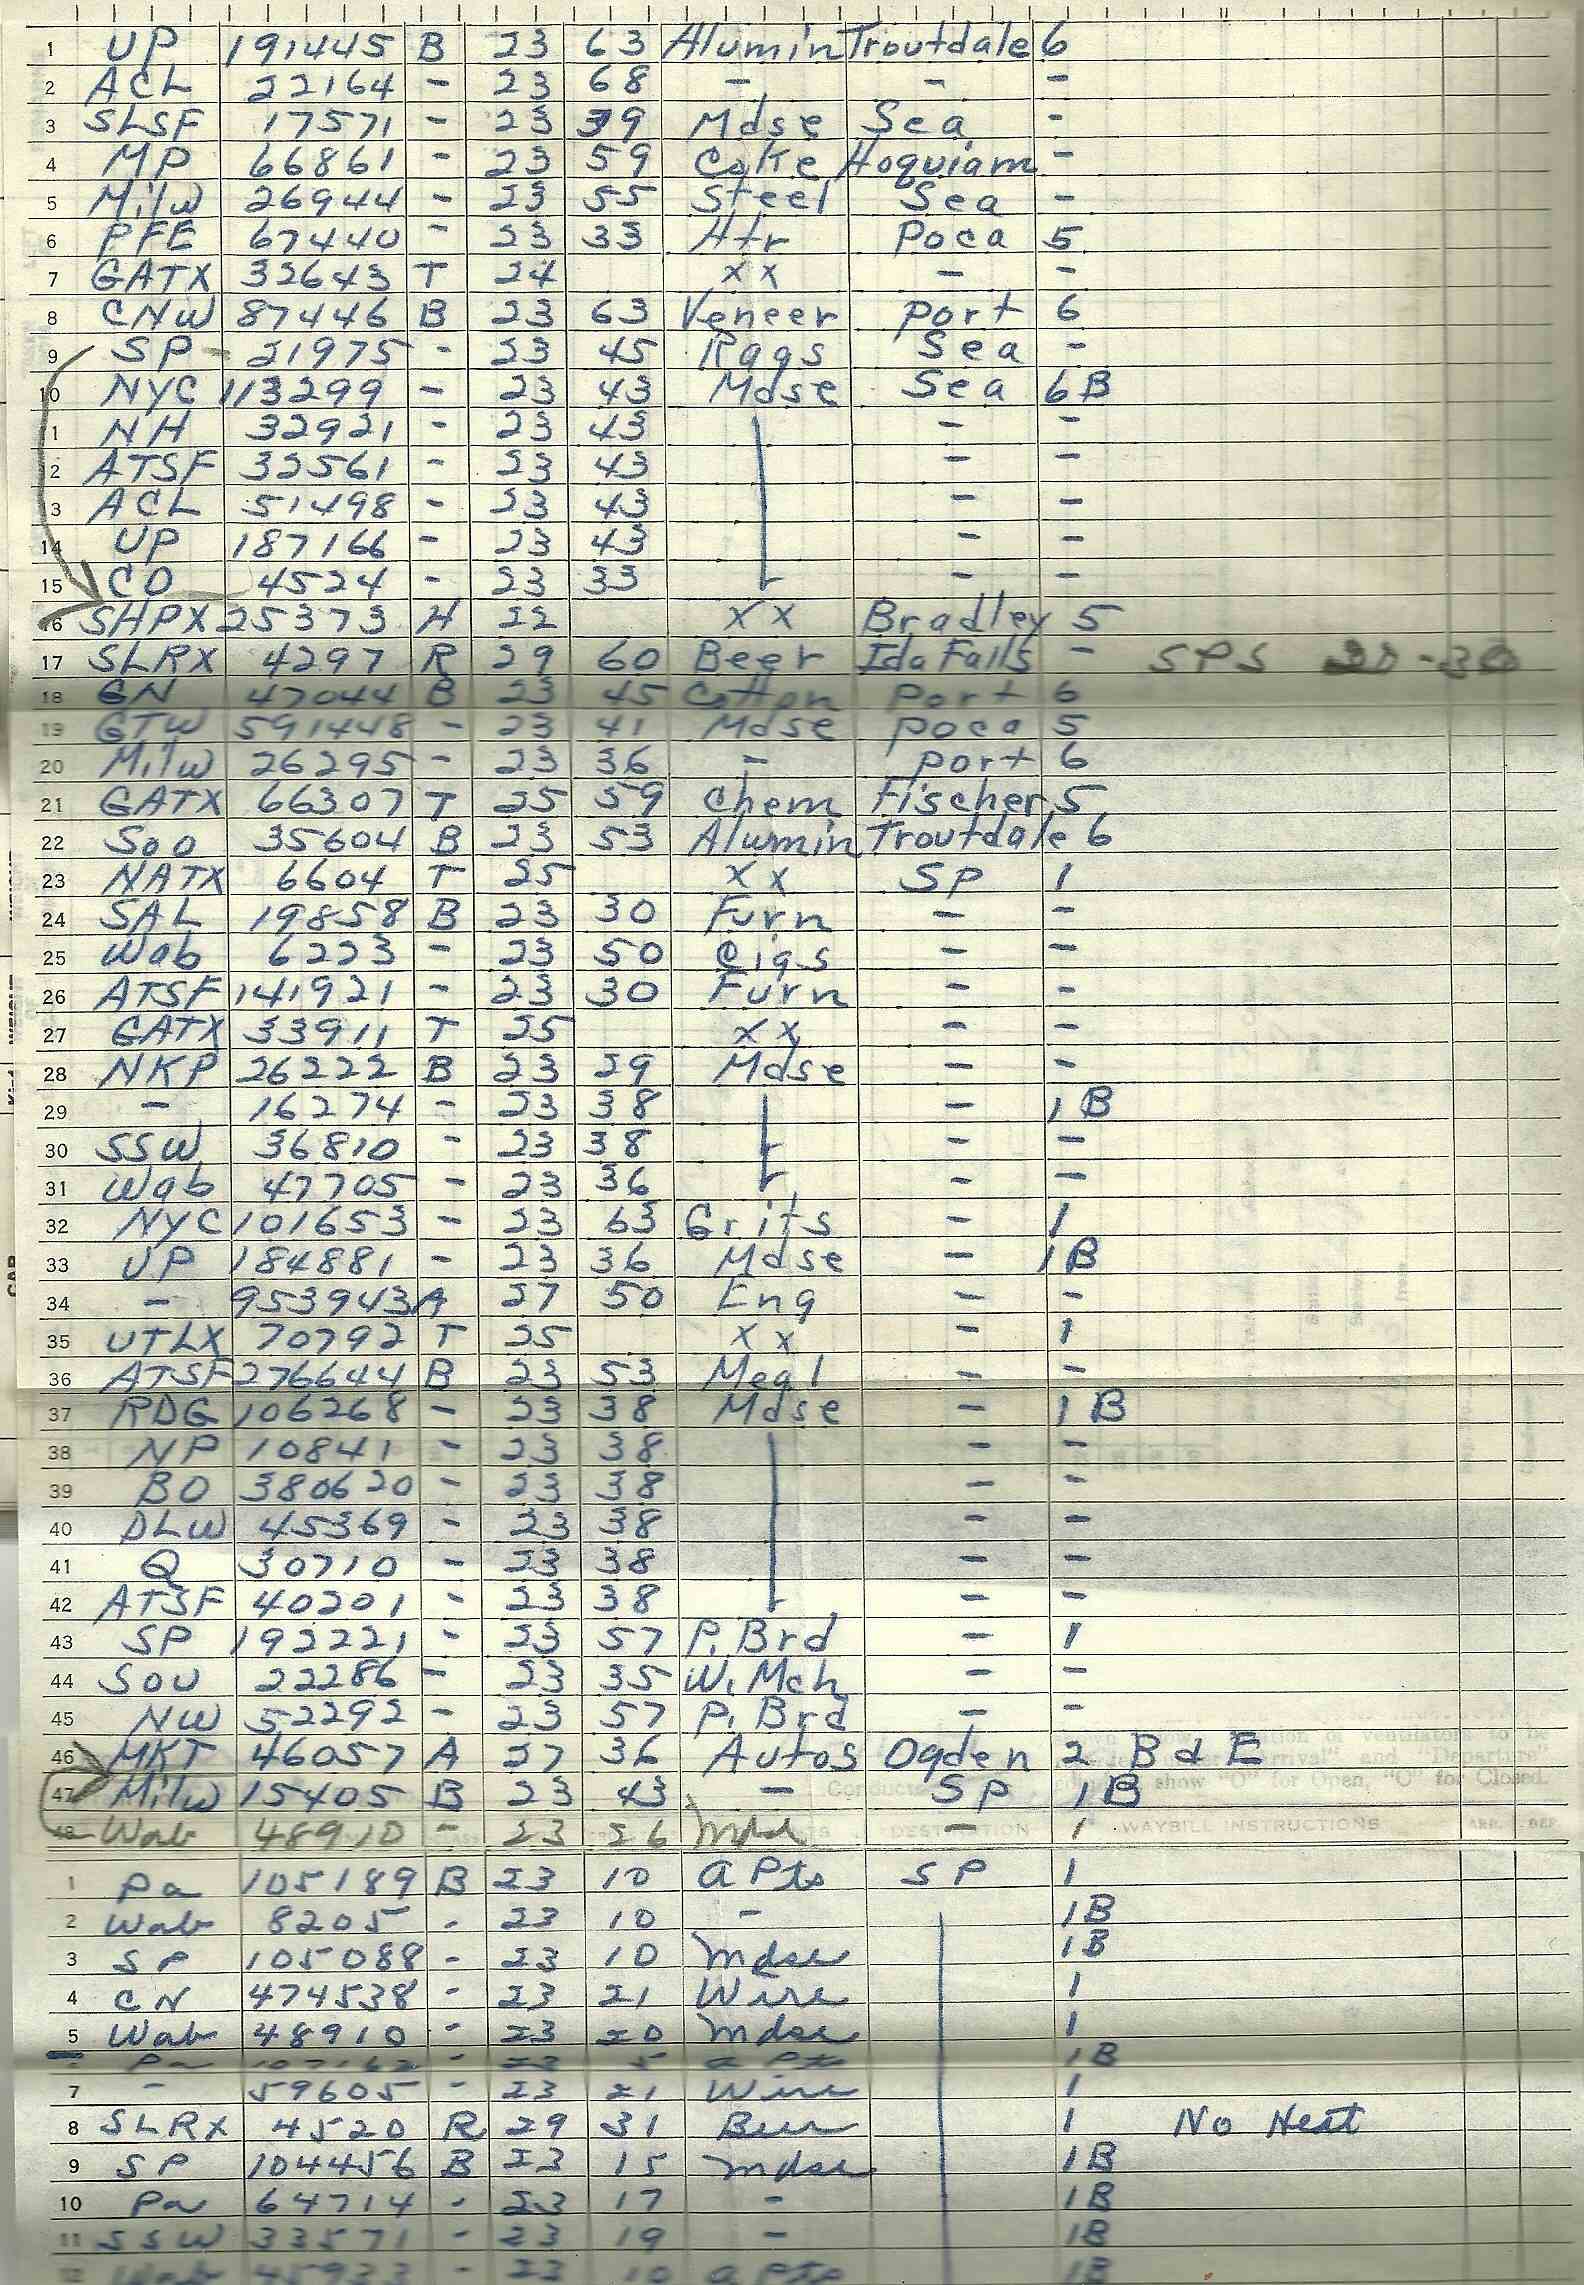 1 UP 191445 B 23 63 Alumin Troutdale 6
2 ACL 22164 - 23 68 - - -
3 SLSF 17571 - 23 39 Mdse Sea -
4 MP 66861 - 23 59 Coke Hoquiam -
5 Milw 26944 - 23 55 Steel Sea -
6 PFE 67440 - 23 33 Htr Poca 5
7 GATX 32643 T 24 xx - -
8 CNW 87446 B 23 63 Veneer Port 6
9 SP 21975 - 23 45 Rags Sea -
10 NYC 113299 - 23 43 Mdse Sea 6B
11 NH 32921 - 23 43 - -
12 ATSF 32561 - 23 43 - -
13 ACL 51498 - 23 43 - -
14 UP 187166 - 23 43 - -
15 CO 4524 - 23 33 - -
16 SHPX 25373 H 22 xx Bradley 5
17 SLRX 4297 R 29 60 Beer Ida Falls - SPS
18 GN 47044 B 23 45 Cotton Port 6
19 GTW 591448 - 23 41 Mdse Poca 5
20 Milw 26295 - 23 36 - Port 6
21 GATX 66307 T 25 59 Chem Fischer 5
22 Soo 35604 B 23 53 Alumin Troutdale 6
23 NATX 6604 T 25 xx SP 1
24 SAL 19858 B 23 30 Furn - -
25 Wab 6223 - 23 50 Cigs - -
26 ATSF 141921 - 23 30 Furn - -
27 GATX 33911 T 25 xx - -
28 NKP 26222 B 23 29 Mdse - -
29 - 16274 - 23 38 - 1B
30 SSW 36810 - 23 38 - -
31 Wab 47705 - 23 36 - -
32 NYC 101653 - 23 63 Grits - 1
33 UP 184881 - 23 36 Mdse - 1B
34 - 953943 A 27 50 Eng - -
35 UTLX 70792 T 25 xx - 1
36 ATSF 276644 B 23 53 Meal - -
37 RDG 106268 - 23 38 Mdse - 1B
38 NP 10841 - 23 38 - -
39 BO 380620 - 23 38 - -
40 DLW 45369 - 23 38 - -
41 Q 30710 - 23 38 - -
42 ATSF 40201 - 23 38 - -
43 SP 192221 - 23 57 P. Brd - 1
44 SOU 22286 - 23 35 W. Mch - -
45 NW 52292 - 23 57 P. Brd - -
46 MKT 46057 A 27 36 Autos Ogden 2 B d E
47 Milw 15405 B 23 43 - SP 1B
48 Wab 48910 - 23 26 Mdse - 1
DESTINATION WAYBILL INSTRUCTIONS ARR. DEP.
1 Pa 105189 B 23 10 a Pts SP 1
2 Wab 8205 - 23 10 - 1B
3 SP 105088 - 23 10 Mdse 1B
4 CN 474538 - 23 21 Wire 1
5 Wab 48910 - 23 20 Mdse 1
Pa - 23 5 a Pts 1B
7 - 59605 - 23 21 Wire 1
8 SLRX 4520 R 29 31 Beer 1 No Heat
9 SP 104456 B 23 15 Mdse 1B
10 Pa 64714 - 23 17 - 1B
11 SSW 33571 - 23 19 - 1B
12 Wab 45933 - 23 10 a Pts 1B